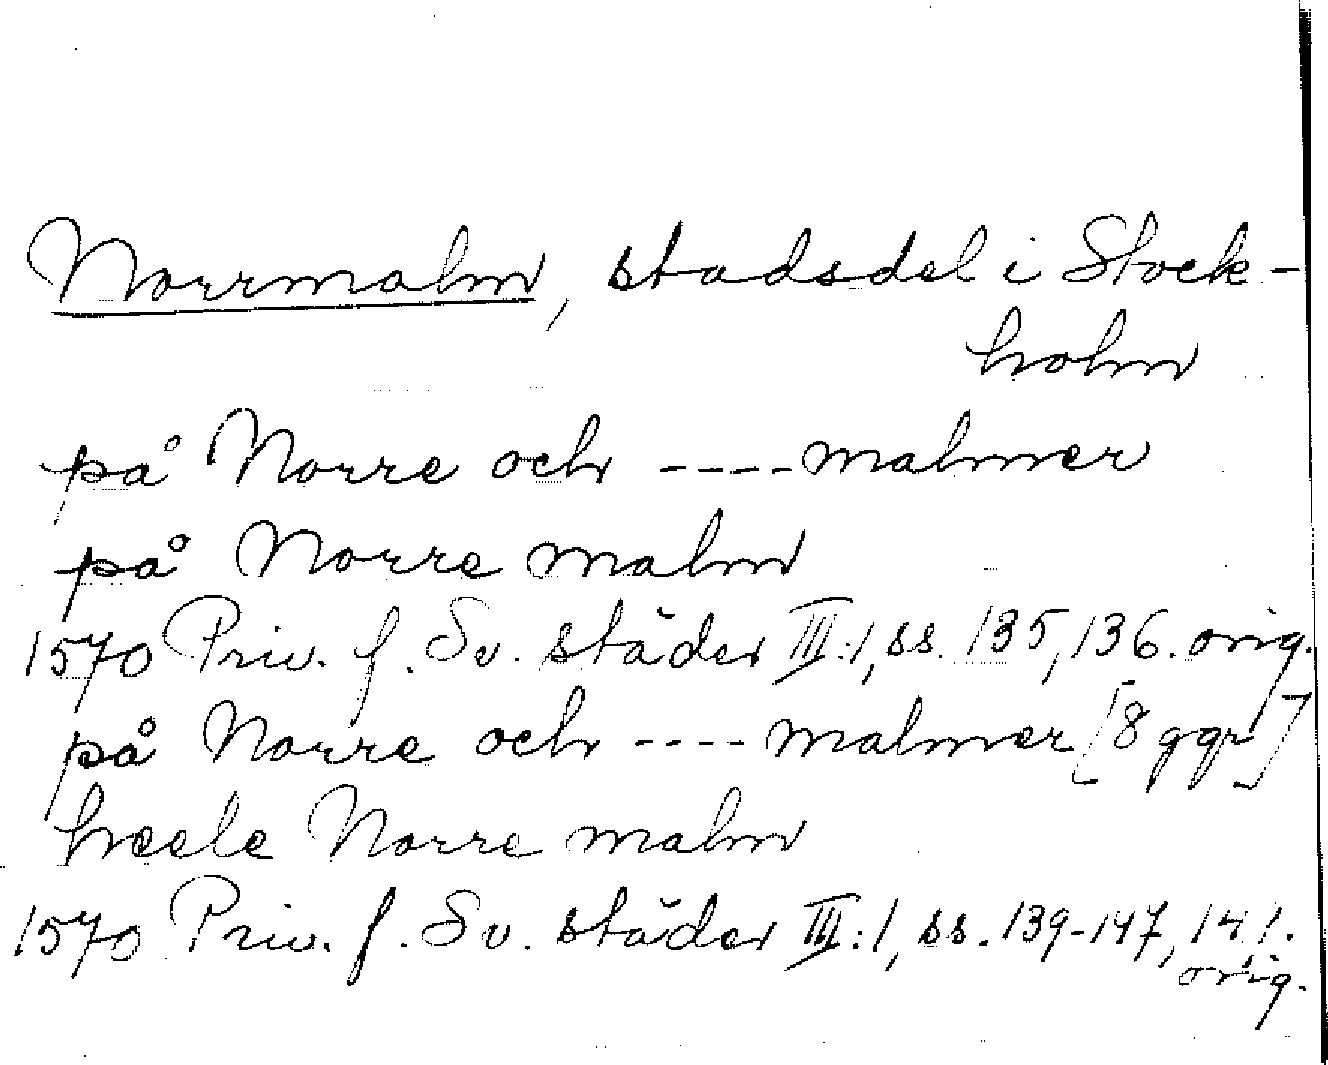 Norrmalm, stadsdel i Stock-
holm
på Norre och ---- malmer
på Norre malm
1570 Priv. f. Sv. städer III:1, ss. 135, 136. orig.
på Norre och ---- malmer [8 ggr]
heele Norre malm
1570 Priv. f. Sv. städer III:1, ss. 139-147, 141.
orig.